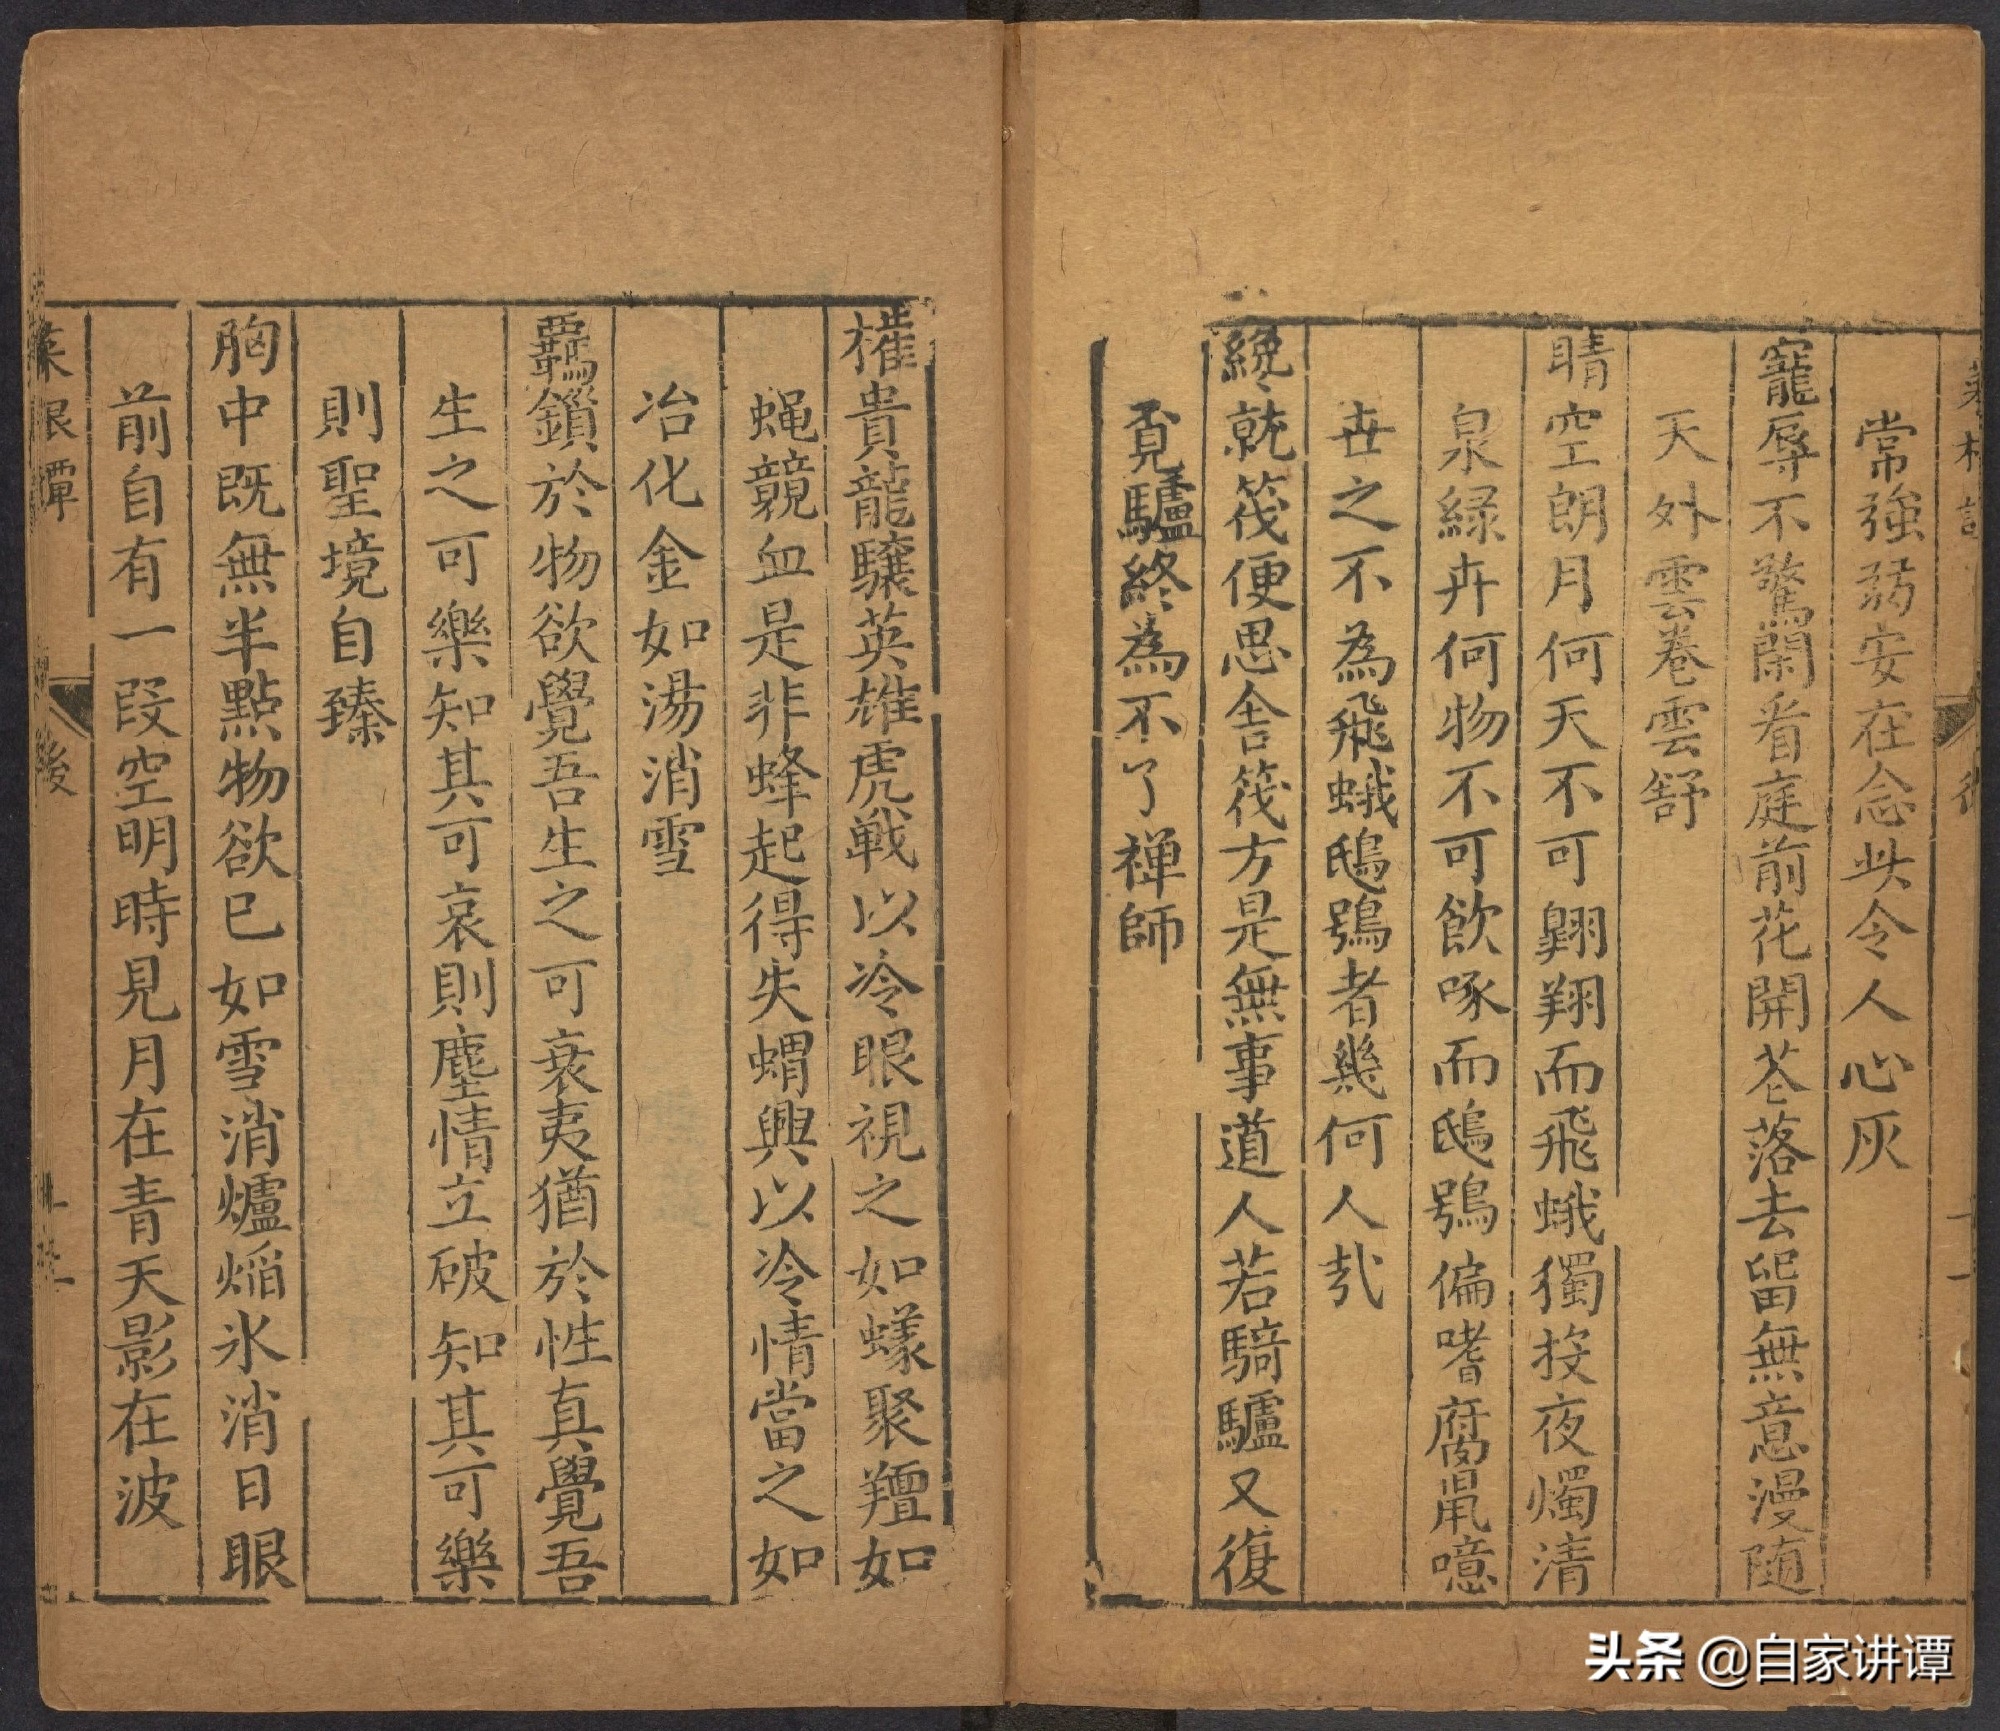 常強弱安在念此令人心灰
寵辱不驚閑看庭前花開花落去留無意漫随
天外雲卷雲舒
晴空朗月何天不可翺翔而飛蛾獨投夜燭清
泉緑卉何物不可飲啄而鴟鴞偏嗜腐鼠噫
世之不為飛蛾鴟鴞者幾何人㢤
纔就筏便思舎筏方是無事道人若騎驢又復
覔驢終為不了禅師
權貴龍驤英雄虎戦以冷眼視之如蟻聚羶如
蝇競血是非蜂起得失蝟興以冷情當之如
冶化金如湯消雪
羈鎖於物欲覺吾生之可哀夷猶於性真覺吾
生之可樂知其可哀則塵情立破知其可樂
則聖境自臻
胸中既無半點物欲已如雪消爐焰氷消日眼
前自有一段空明時見月在青天影在波
菜根譚
後
头条 @自家讲谭